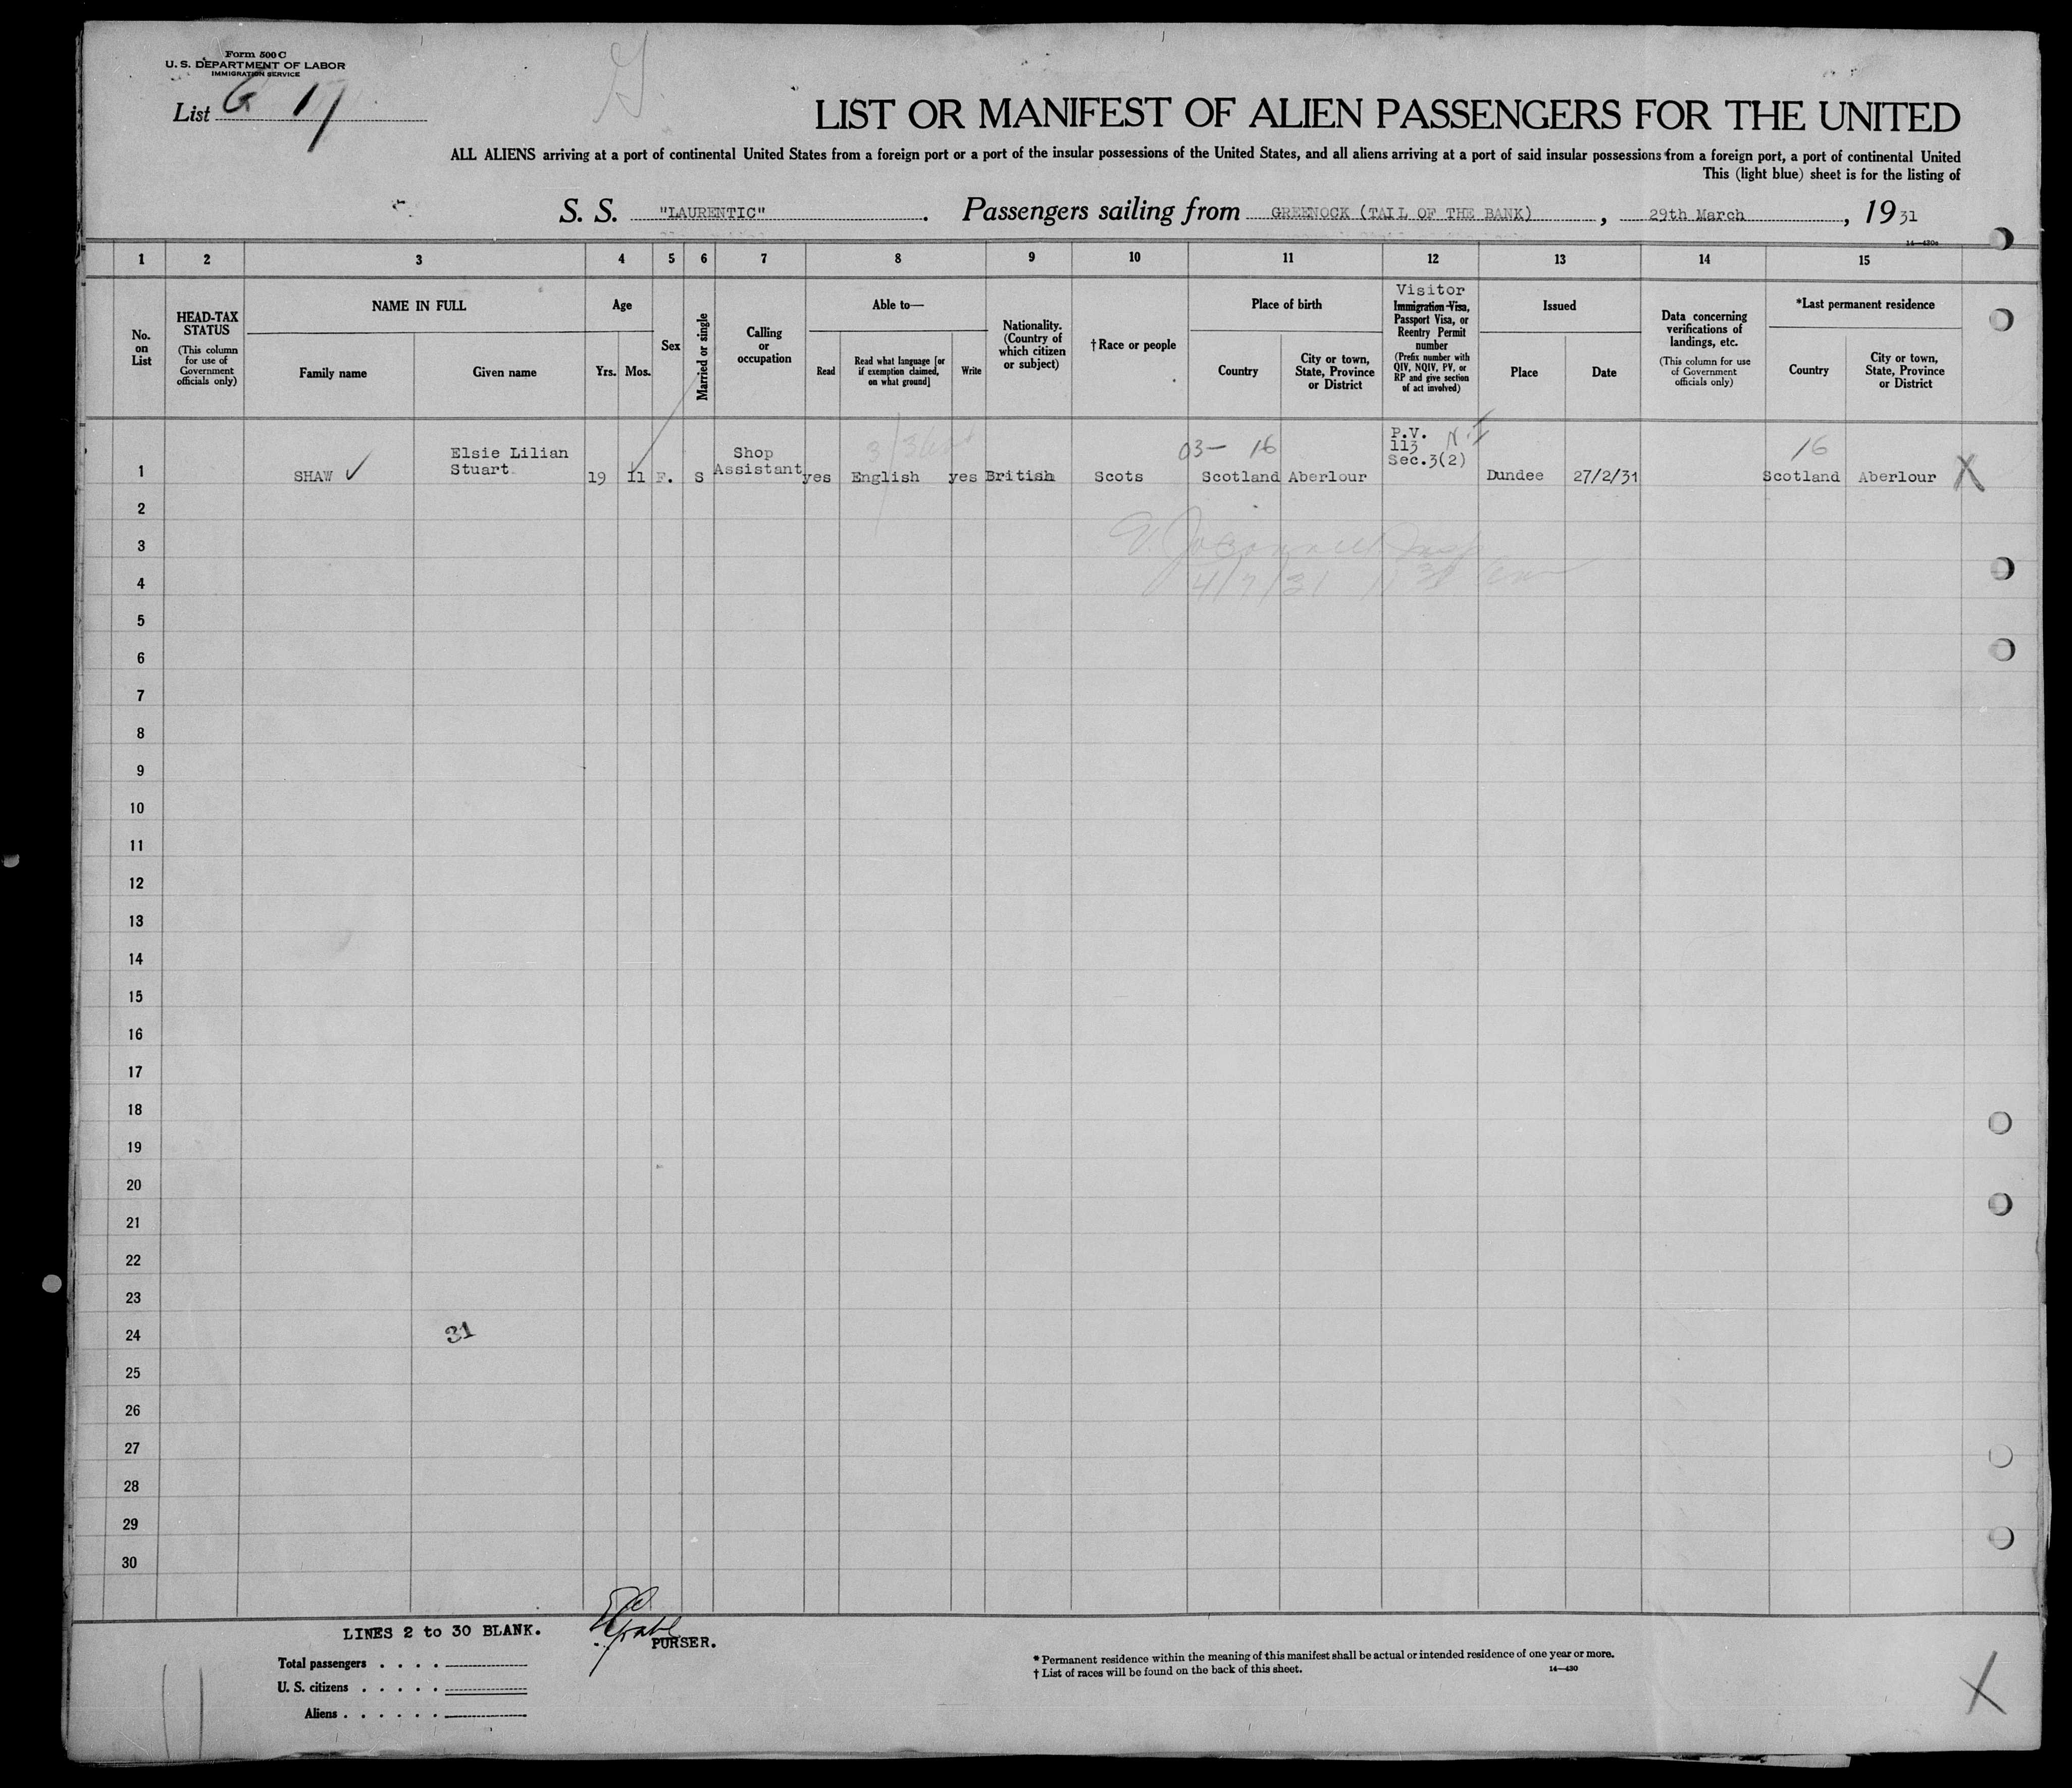 Form 500 C
U. S. DEPARTMENT OF LABOR
IMMIGRATION SERVICE
List G 17
G.
LIST OR MANIFEST OF ALIEN PASSENGERS FOR THE UNITED
ALL ALIENS arriving at a port of continental United States from a foreign port or a port of the insular possessions of the United States, and all aliens arriving at a port of said insular possessions from a foreign port, a port of continental United
This (light blue) sheet is for the listing of
S. S. "LAURENTIC". Passengers sailing from GREENOCK (TAIL OF THE BANK), 29th March, 1931
14—430a
1 2 3 4 5 6 7 8 9 10 11 12 13 14 15
No. on List
HEAD-TAX STATUS
(This column for use of Government officials only)
NAME IN FULL
Family name
Given name
Age
Yrs. Mos.
Sex
Married or single
Calling or occupation
Able to—
Read
Read what language [or if exemption claimed, on what ground]
Write
Nationality. (Country of which citizen or subject)
†Race or people
Place of birth
Country
City or town, State, Province or District
Visitor
Immigration Visa, Passport Visa, or Reentry Permit number
(Prefix number with QIV, NQIV, PV, or RP and give section of act involved)
Issued
Place
Date
Data concerning verifications of landings, etc.
(This column for use of Government officials only)
*Last permanent residence
Country
City or town, State, Province or District
03— 16
16
1 SHAW ✓ Elsie Lilian Stuart 19 11 F. S Shop Assistant yes English yes British Scots Scotland Aberlour P.V. 113 Sec.3(2) Dundee 27/2/31 Scotland Aberlour X
2
3
4
4/7/31
5
6
7
8
9
10
11
12
13
14
15
16
17
18
19
20
21
22
23
24
31
25
26
27
28
29
30
LINES 2 to 30 BLANK.
PURSER.
Total passengers . . . .
U. S. citizens . . . . .
Aliens . . . . . .
* Permanent residence within the meaning of this manifest shall be actual or intended residence of one year or more.
† List of races will be found on the back of this sheet.
14—430
X